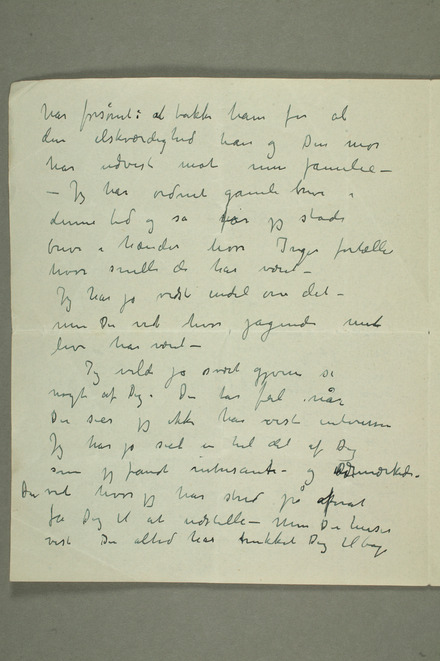 har forsømt: at takke ham for al
den elskværdighed han og Din mor
har udvist mot min familie –
– Jeg har ordnet gamle breve i
denne tid og så får jeg stadig
breve i hænder hvor Inger fortæller
hvor snille de har været –
Jeg har jo vidst endel om det –
men Du ved hvor jagende mit
liv har været –
Jeg vilde jo svært gjerne se
noget af Dig. Du tar feil når
Du sier jeg ikke har vist interesse
Jeg har jo set en hel del af Dig
som jeg fandt interessant – og
Du ved hvor jeg har stred på
få Dig til at udstille – men Du husker
vist Du altid har trukket Dig tilbage